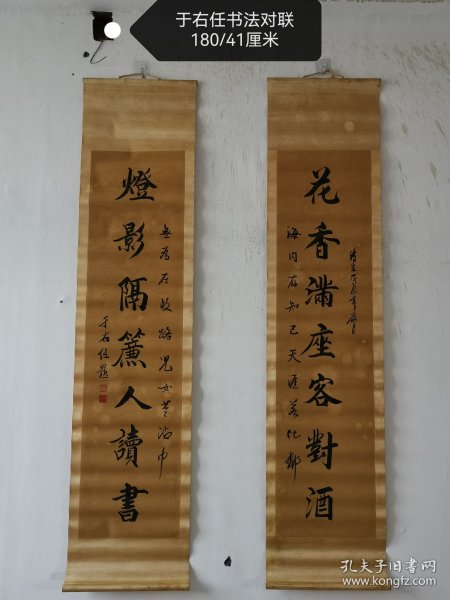 于右任书法对联
180/41厘米
花香满座客對酒
海内存知己天涯若比鄰
燈影隔簾人讀書
無為在歧路兒女共沾巾
于右任題
孔夫子旧书网
www.kongfz.com